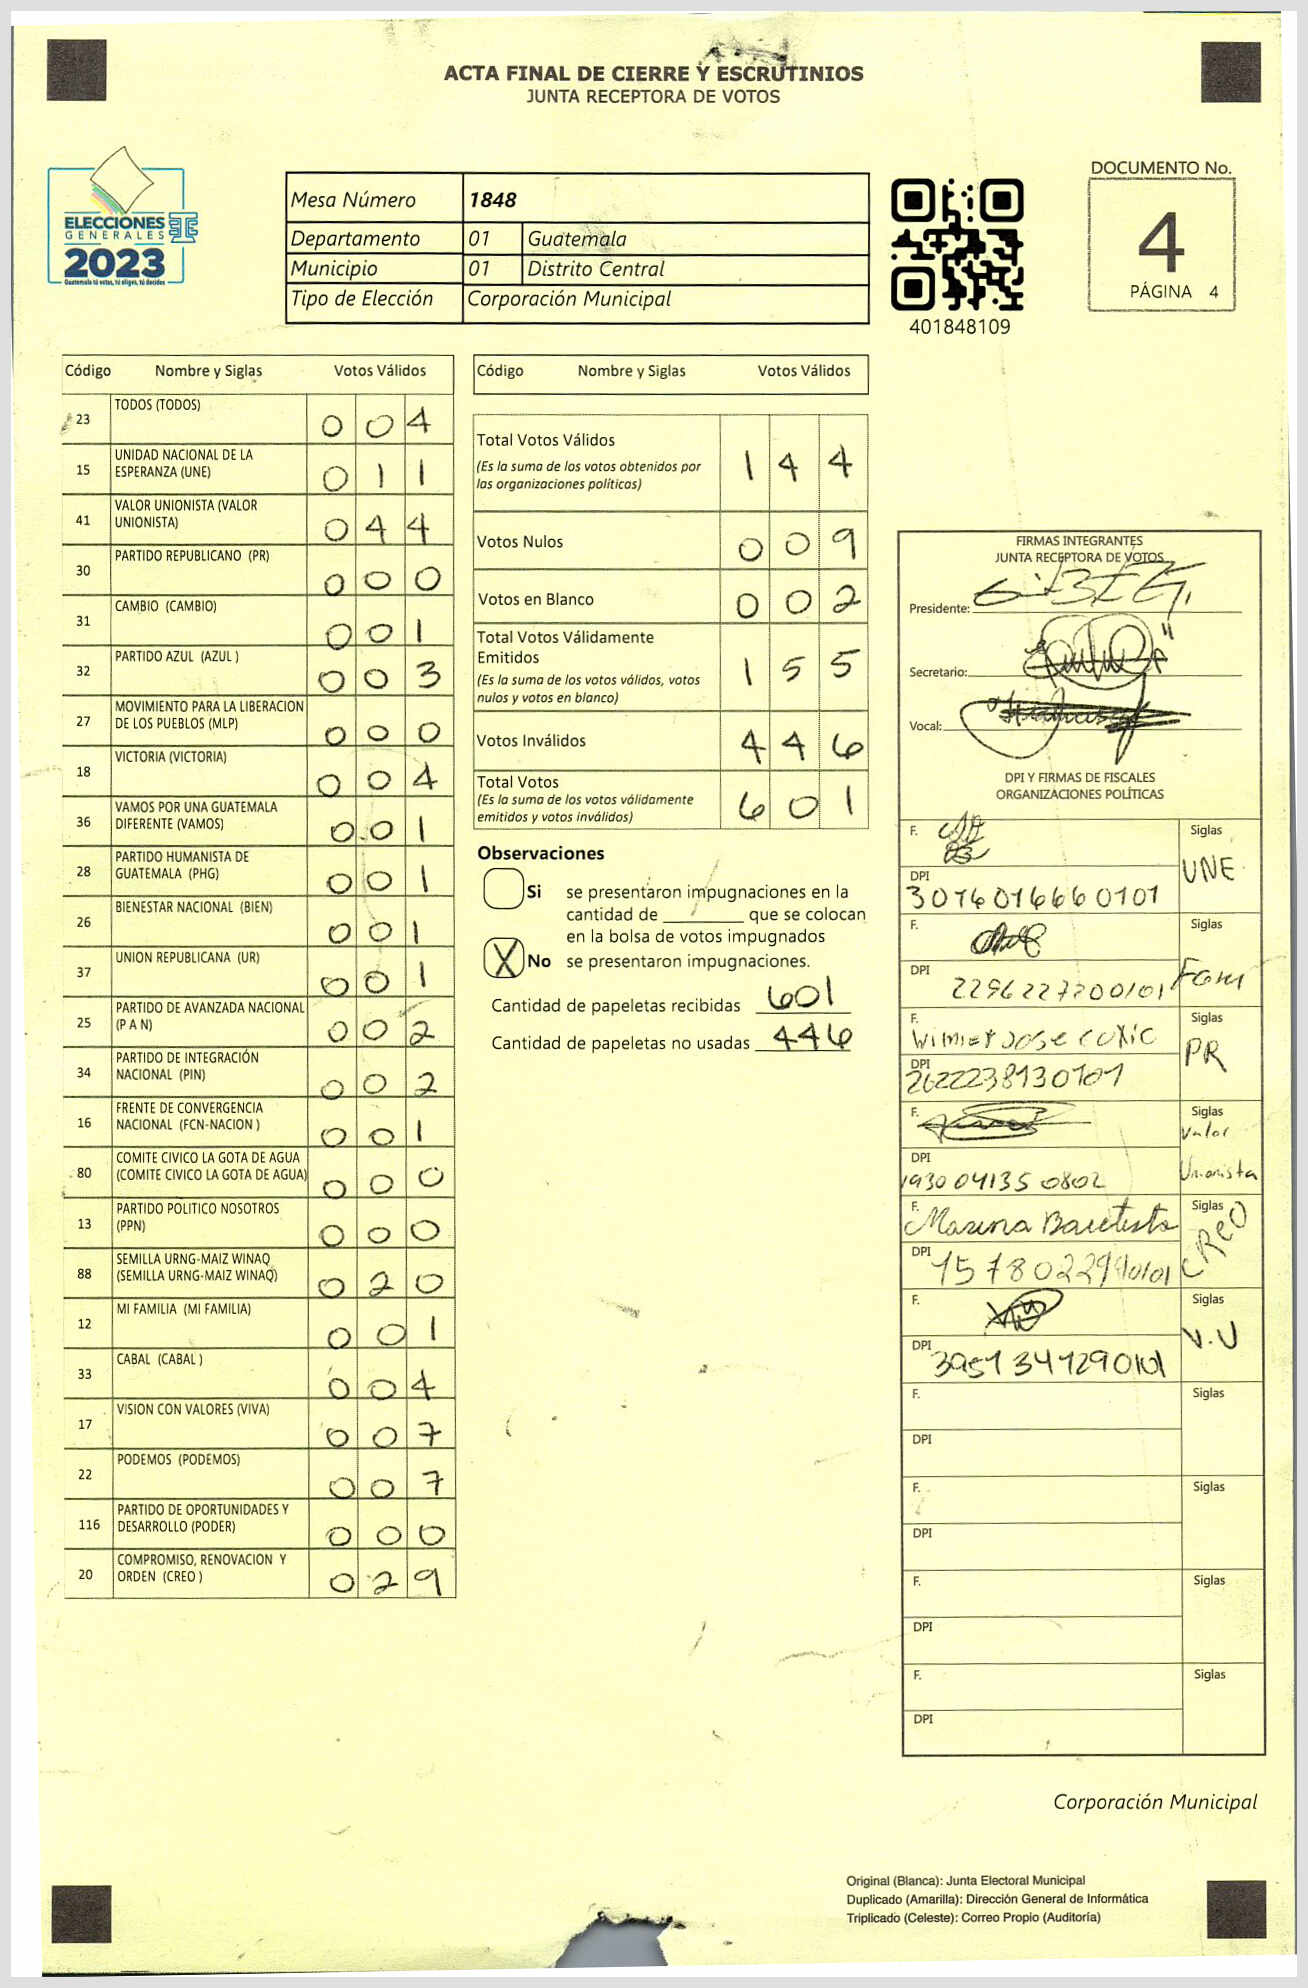 ACTA FINAL DE CIERRE Y ESCRUTINIOS
JUNTA RECEPTORA DE VOTOS
ELECCIONES
GENERALES
2023
Guatemala tú votas, tú eliges, tú decides
Mesa Número 1848
Departamento 01 Guatemala
Municipio 01 Distrito Central
Tipo de Elección Corporación Municipal
401848109
DOCUMENTO No.
4
PÁGINA 4
Código Nombre y Siglas Votos Válidos
23 TODOS (TODOS) 0 0 4
15 UNIDAD NACIONAL DE LA ESPERANZA (UNE) 0 1 1
41 VALOR UNIONISTA (VALOR UNIONISTA) 0 4 4
30 PARTIDO REPUBLICANO (PR) 0 0 0
31 CAMBIO (CAMBIO) 0 0 1
32 PARTIDO AZUL (AZUL ) 0 0 3
27 MOVIMIENTO PARA LA LIBERACION DE LOS PUEBLOS (MLP) 0 0 0
18 VICTORIA (VICTORIA) 0 0 4
36 VAMOS POR UNA GUATEMALA DIFERENTE (VAMOS) 0 0 1
28 PARTIDO HUMANISTA DE GUATEMALA (PHG) 0 0 1
26 BIENESTAR NACIONAL (BIEN) 0 0 1
37 UNION REPUBLICANA (UR) 0 0 1
25 PARTIDO DE AVANZADA NACIONAL (P A N) 0 0 2
34 PARTIDO DE INTEGRACIÓN NACIONAL (PIN) 0 0 2
16 FRENTE DE CONVERGENCIA NACIONAL (FCN-NACION ) 0 0 1
80 COMITE CIVICO LA GOTA DE AGUA (COMITE CIVICO LA GOTA DE AGUA) 0 0 0
13 PARTIDO POLITICO NOSOTROS (PPN) 0 0 0
88 SEMILLA URNG-MAIZ WINAQ (SEMILLA URNG-MAIZ WINAQ) 0 2 0
12 MI FAMILIA (MI FAMILIA) 0 0 1
33 CABAL (CABAL ) 0 0 4
17 VISION CON VALORES (VIVA) 0 0 7
22 PODEMOS (PODEMOS) 0 0 7
116 PARTIDO DE OPORTUNIDADES Y DESARROLLO (PODER) 0 0 0
20 COMPROMISO, RENOVACION Y ORDEN (CREO ) 0 2 9
Código Nombre y Siglas Votos Válidos
Total Votos Válidos 1 4 4
(Es la suma de los votos obtenidos por
las organizaciones políticas)
Votos Nulos 0 0 9
Votos en Blanco 0 0 2
Total Votos Válidamente
Emitidos 1 5 5
(Es la suma de los votos válidos, votos
nulos y votos en blanco)
Votos Inválidos 4 4 6
Total Votos 6 0 1
(Es la suma de los votos válidamente
emitidos y votos inválidos)
Observaciones
Si se presentaron impugnaciones en la
cantidad de ________ que se colocan
en la bolsa de votos impugnados
X No se presentaron impugnaciones.
Cantidad de papeletas recibidas 601
Cantidad de papeletas no usadas 446
FIRMAS INTEGRANTES
JUNTA RECEPTORA DE VOTOS
Presidente:
Secretario:
Vocal:
DPI Y FIRMAS DE FISCALES
ORGANIZACIONES POLÍTICAS
F. Siglas
UNE
DPI
F. Siglas
DPI
F. Siglas
PR
DPI
F. Siglas
Valor
Unionista
DPI
1930 04135 0802
F. Marina Bautista Siglas
CREO
DPI
F. Siglas
V.U
DPI
F. Siglas
DPI
F. Siglas
DPI
F. Siglas
DPI
F. Siglas
DPI
Corporación Municipal
Original (Blanca): Junta Electoral Municipal
Duplicado (Amarilla): Dirección General de Informática
Triplicado (Celeste): Correo Propio (Auditoría)